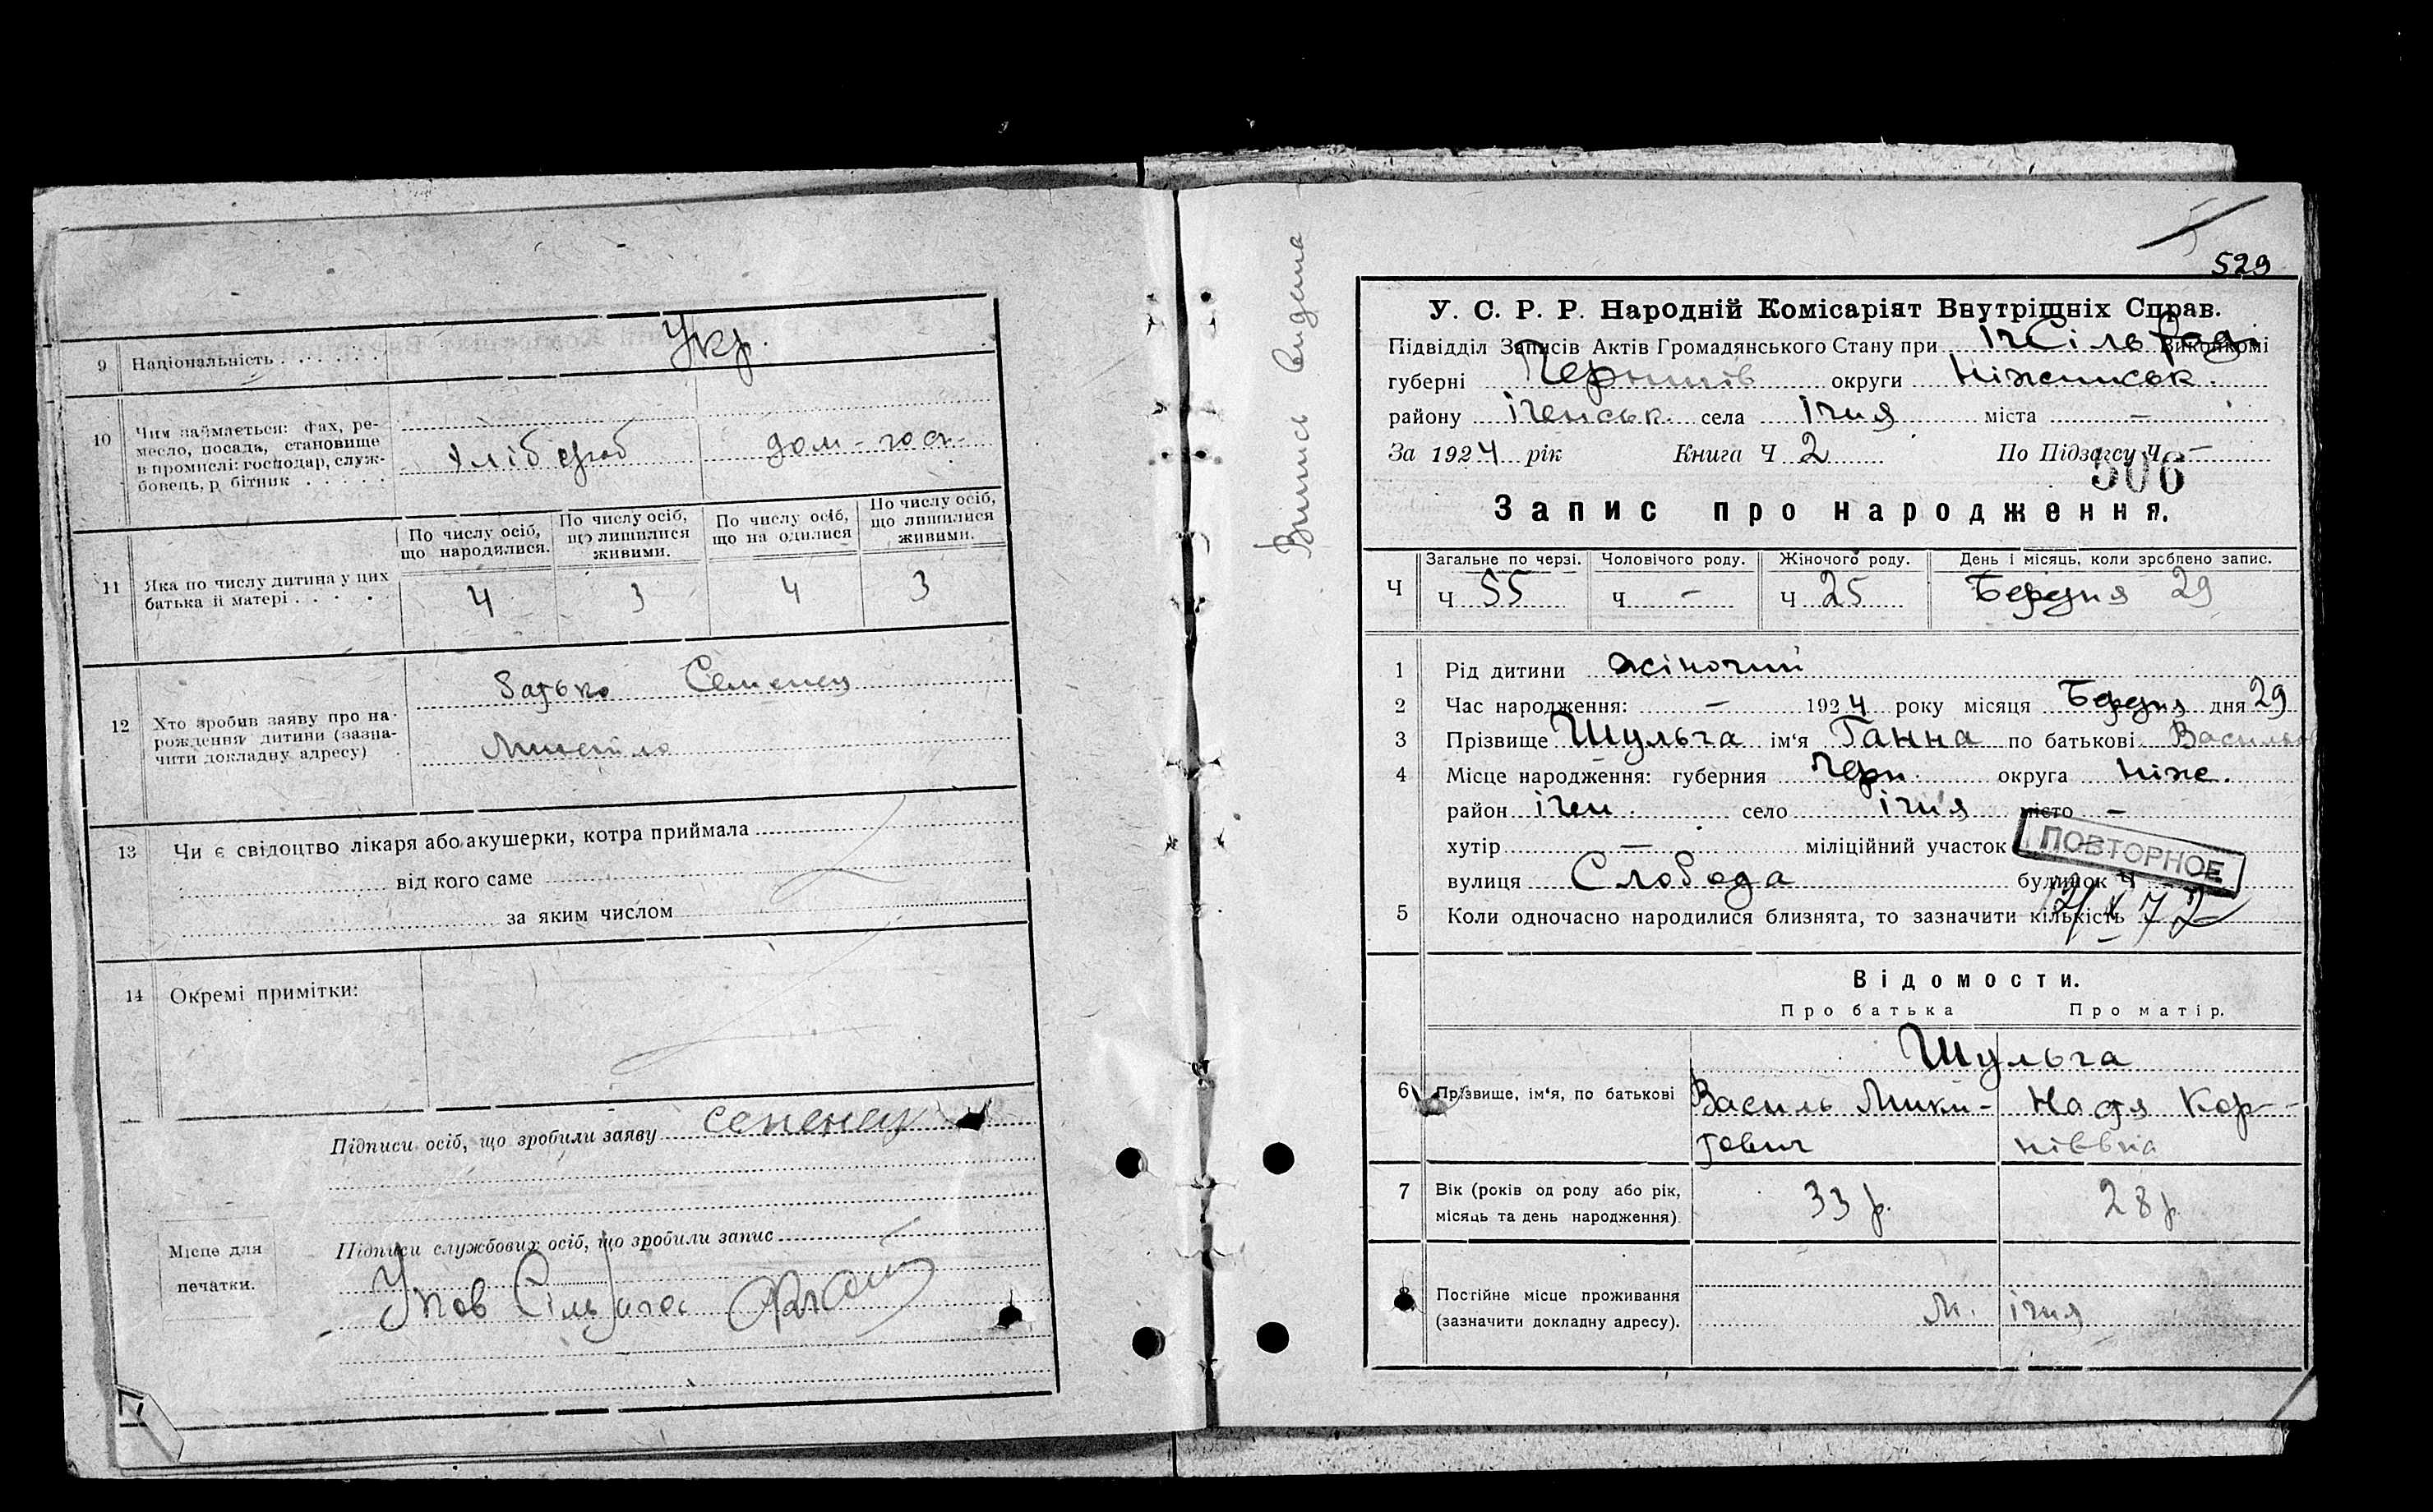 9 Національність . . . . . . Укр.
10 Чим займається: фах, ре-
месло, посада, становище
в промислі: господар, служ-
бовець, р бітник . . . . .
Хлібороб дом-госп.
11 Яка по числу дитина у цих
батька й матері . . . .
По числу осіб, що народилися. 4
По числу осіб, що лишилися живими. 3
По числу осіб, що на одилися 4
По числу осіб, що лишилися живими. 3
12 Хто зробив заяву про на-
рождення дитини (зазна-
чити докладну адресу) .
Батько Семенец
13 Чи є свідоцтво лікаря або акушерки, котра приймала
від кого саме
за яким числом
14 Окремі примітки:
Підписи осіб, що зробили заяву семенец
Підписи службових осіб, що зробили запис
Місце для
печатки.
Випись видана
5
529
У. С. Р. Р. Народній Комісаріят Внутрішніх Справ.
Підвідділ Записів Актів Громадянського Стану при ІчСільРад. Виконкомі
губерні Чернигів округи Ніженськ.
району Іченськ. села Ічня міста —
За 1924 рік Книга Ч 2 По Підзагсу Ч. —
506
Запис про народження.
Загальне по черзі. Чоловічого роду. Жіночого роду. День і місяць, коли зроблено запис.
Ч Ч 55 Ч — Ч 25 Березня 29
1 Рід дитини жіночий
2 Час народження: — 1924 року місяця Березня дня 29
3 Прізвище Шульга ім'я Ганна по батькові Васильов
4 Місце народження: губерния Черн. округа Ніже.
район Ічен. село Ічня місто —
хутір — міліційний участок
ПОВТОРНОЕ
вулиця Слобода будинок Ч
5 Коли одночасно народилися близнята, то зазначити кількість —
Відомости.
Про батька Про матір.
Шульга
6 Прізвище, ім'я, по батькові Василь Мики- Надя Кор-
тович ніївна
7 Вік (років од роду або рік,
місяць та день народження) 33 р. 28 р.
8 Постійне місце проживання
(зазначити докладну адресу). м. Ічня